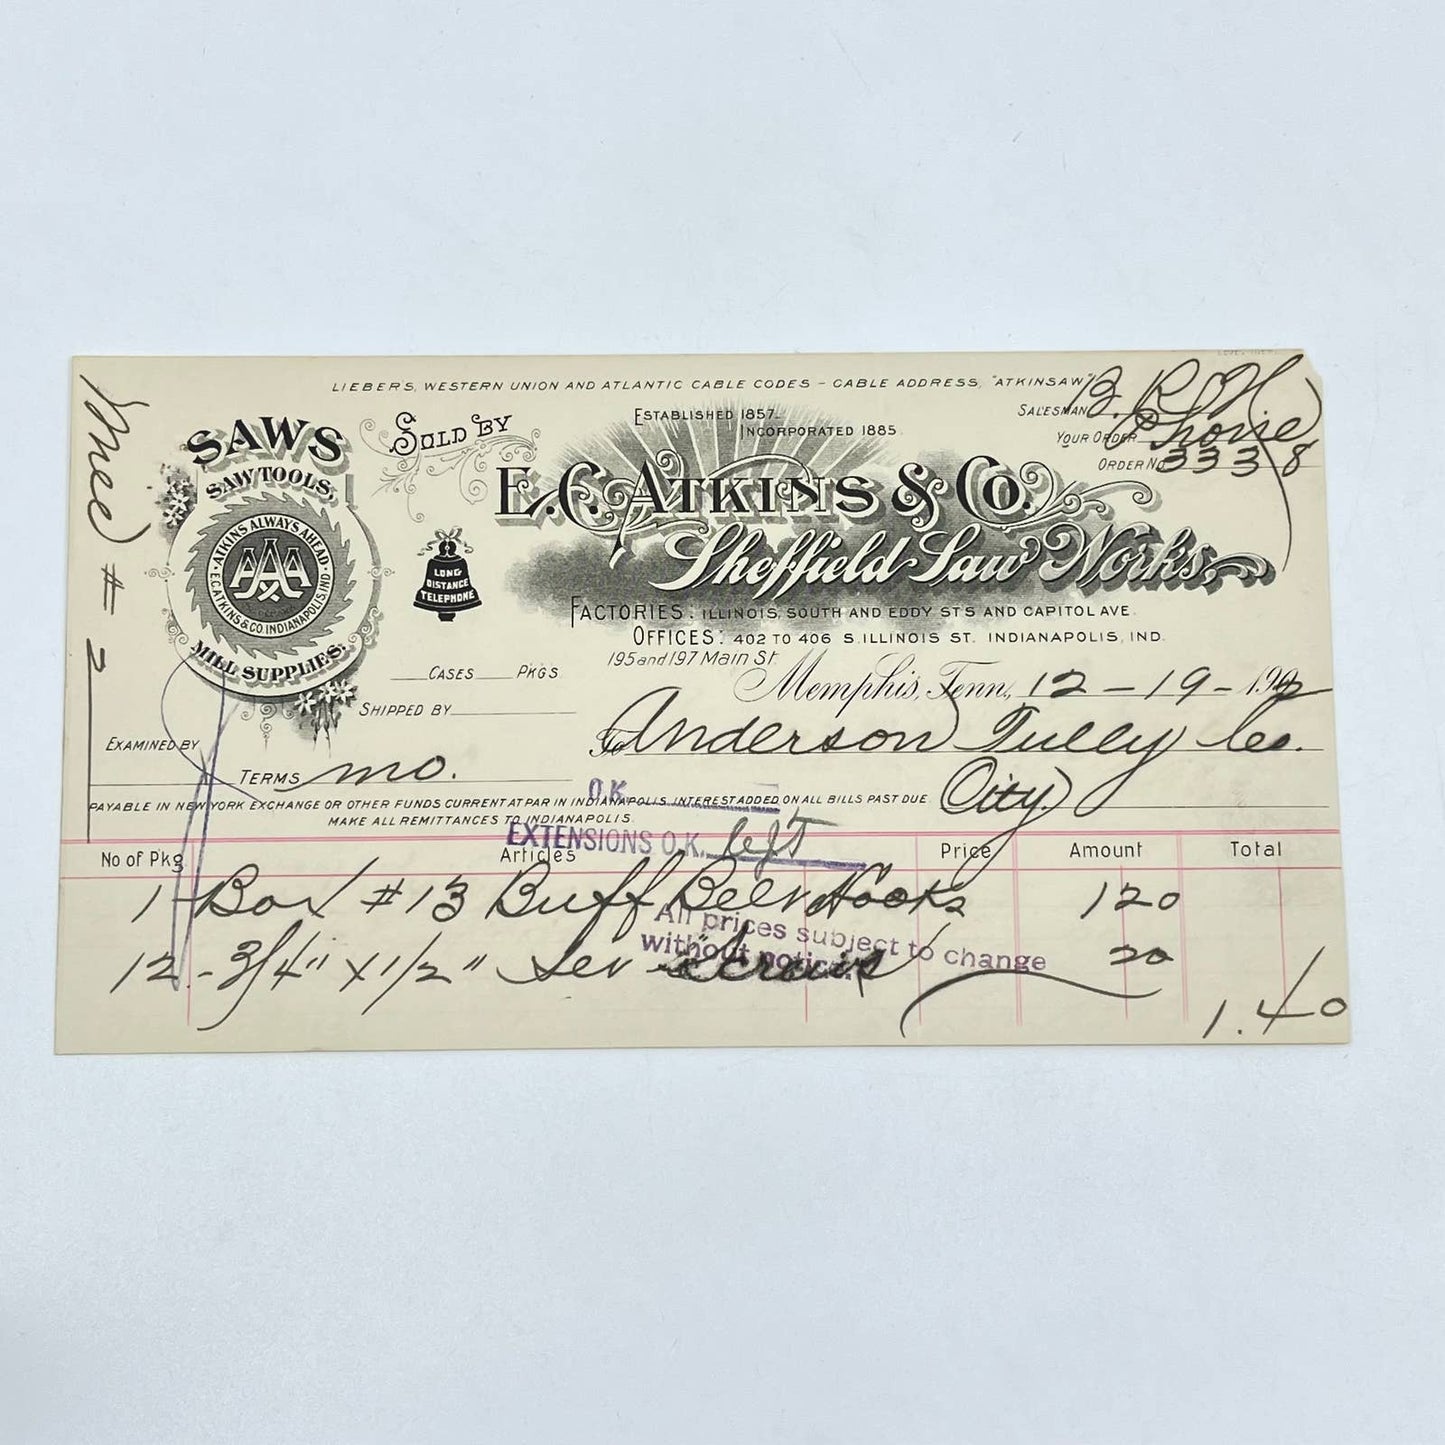 LIEBERS, WESTERN UNION AND ATLANTIC CABLE CODES – CABLE ADDRESS, "ATKINSAW"
SALESMAN B. R. H
YOUR ORDER Phone
ORDER NO 3338
# 2
SAWS
SAW TOOLS,
ATKINS ALWAYS AHEAD
AAA
E.C. ATKINS & CO. INDIANAPOLIS, IND.
MILL SUPPLIES.
SOLD BY
ESTABLISHED 1857.
INCORPORATED 1885.
E. C. ATKINS & CO.
Sheffield Saw Works.
LONG
DISTANCE
TELEPHONE
FACTORIES: ILLINOIS, SOUTH AND EDDY STS AND CAPITOL AVE.
OFFICES: 402 TO 406 S. ILLINOIS ST. INDIANAPOLIS, IND.
195 and 197 Main St.
CASES PKGS.
Memphis, Tenn., 12-19-1902
SHIPPED BY
To Anderson Tully Co.
EXAMINED BY
TERMS mo.
City
O.K.
PAYABLE IN NEW YORK EXCHANGE OR OTHER FUNDS CURRENT AT PAR IN INDIANAPOLIS. INTEREST ADDED ON ALL BILLS PAST DUE.
MAKE ALL REMITTANCES TO INDIANAPOLIS.
EXTENSIONS O.K.
No of Pkg Articles Price Amount Total
1 Box #13 Buff Belt Hooks 120
All prices subject to change
without notice.
12 - 3/4" x 1/2" Set Screws 20
1.40